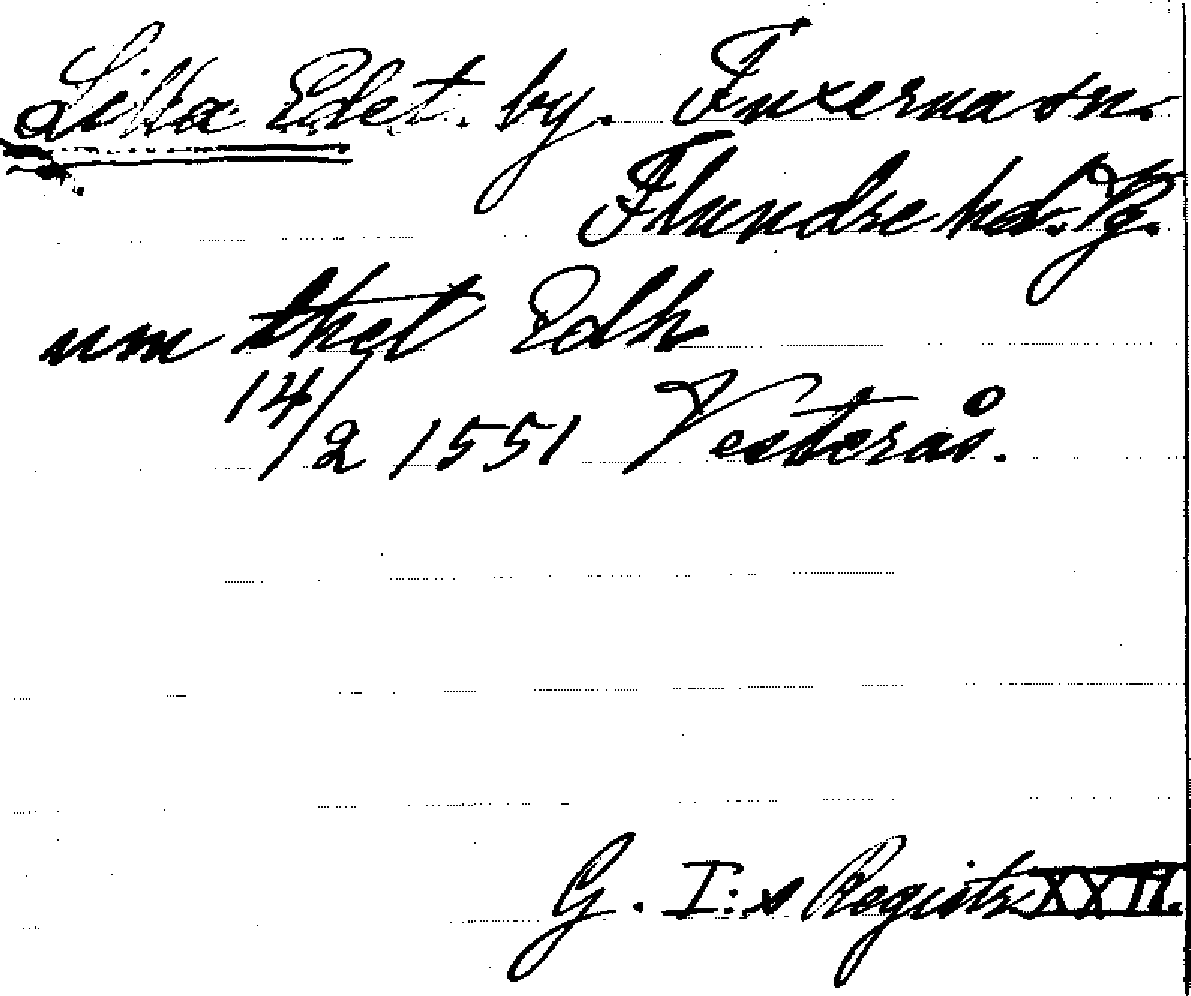 Lilla Edet. by. Fuxerna sn.
Flundre hd. Vg.
um thet Edh
14/2 1551 Vesterås.
G. I:s Registr. XXII.